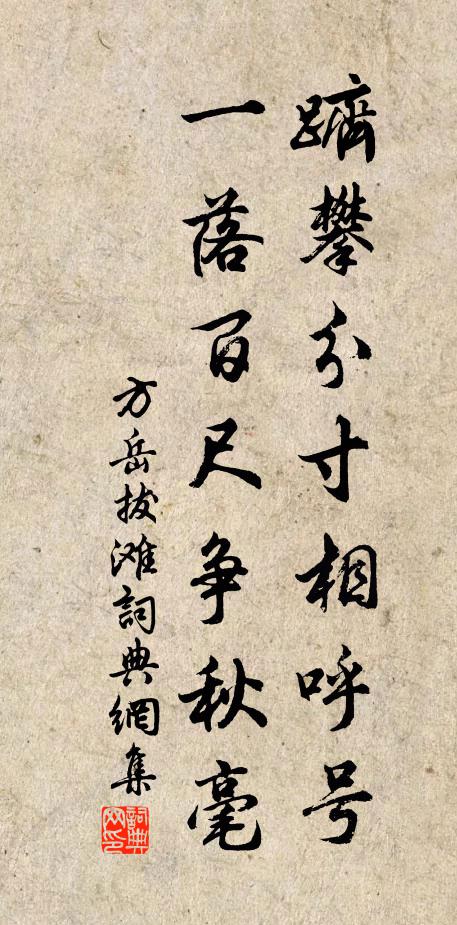 躋攀分寸相呼号
一落百尺争秋毫
方岳拔滩詞典網集
詞典网印